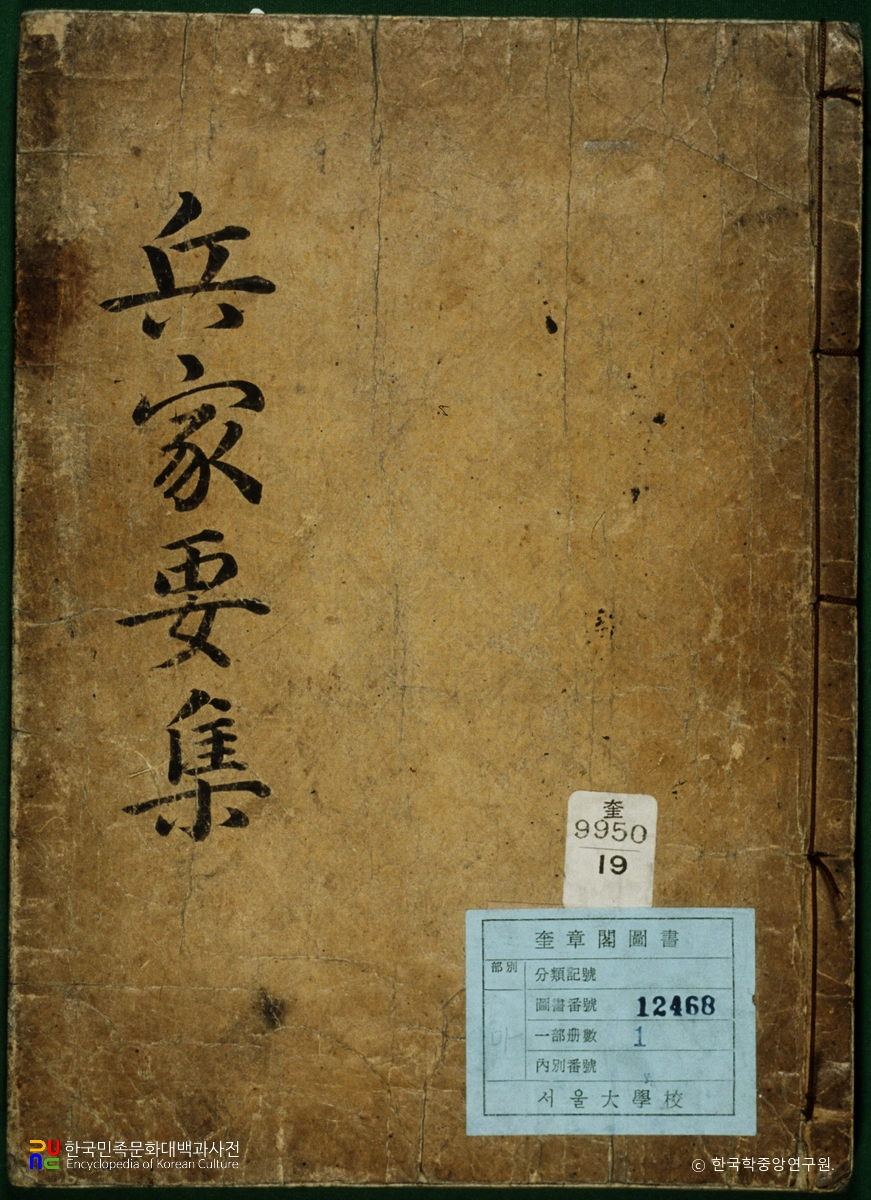 兵家要集
奎
9950
19
奎章閣圖書
部別
分類記號
圖書番號 12468
一部册數 1
內別番號
서울大學校
한국민족문화대백과사전
Encyclopedia of Korean Culture
© 한국학중앙연구원